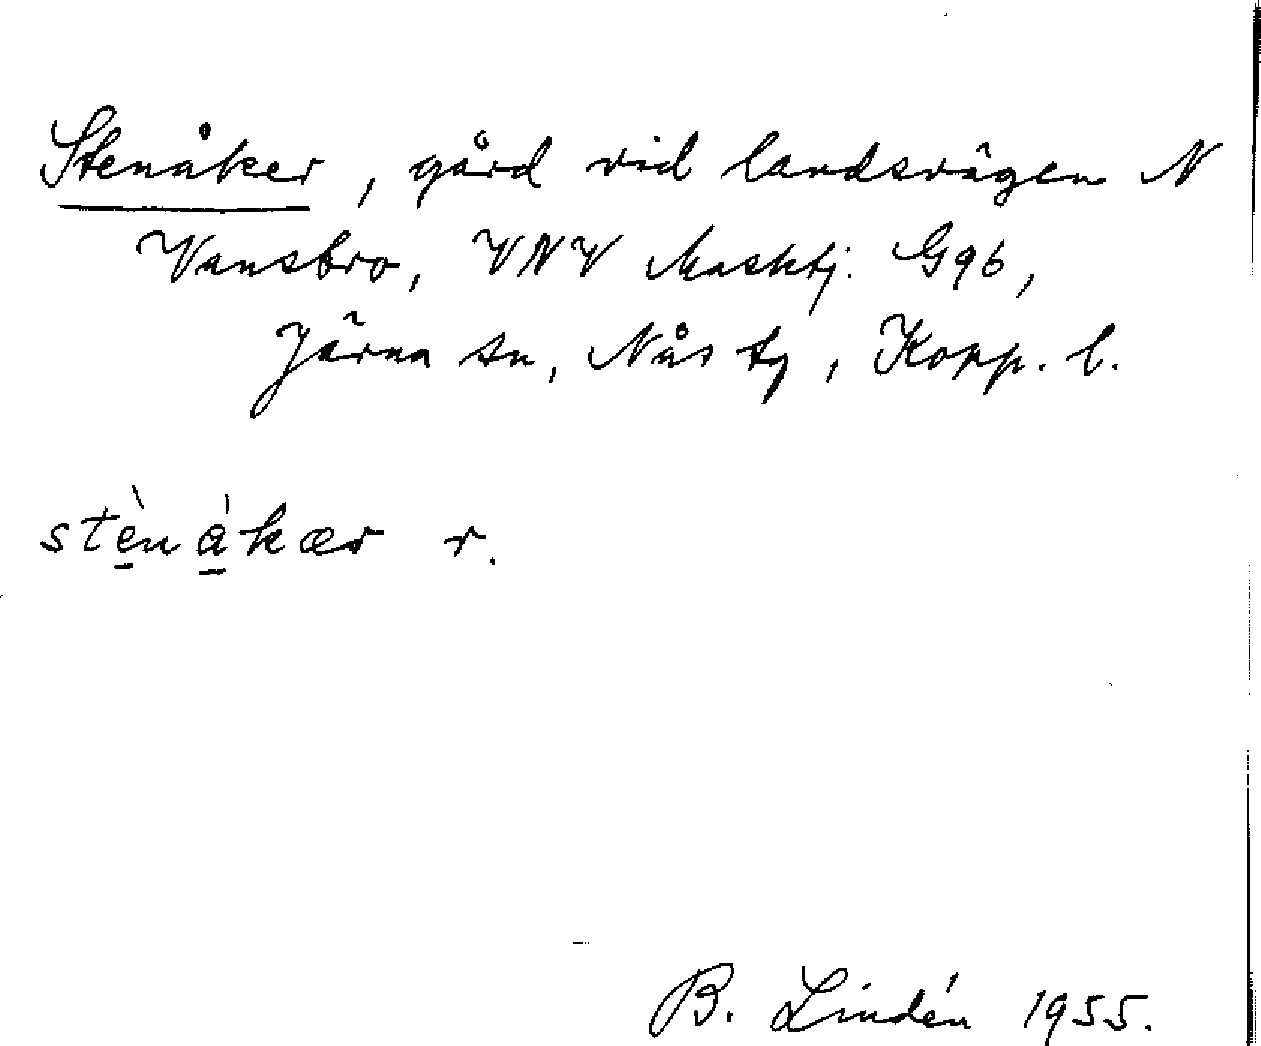 Stenåker, gård vid landsvägen N
Vansbro, VNV Masktj. G96,
Järna sn, Nås tg, Kopp. l.
stè̱ná̱kær r.
B. Lindén 1955.